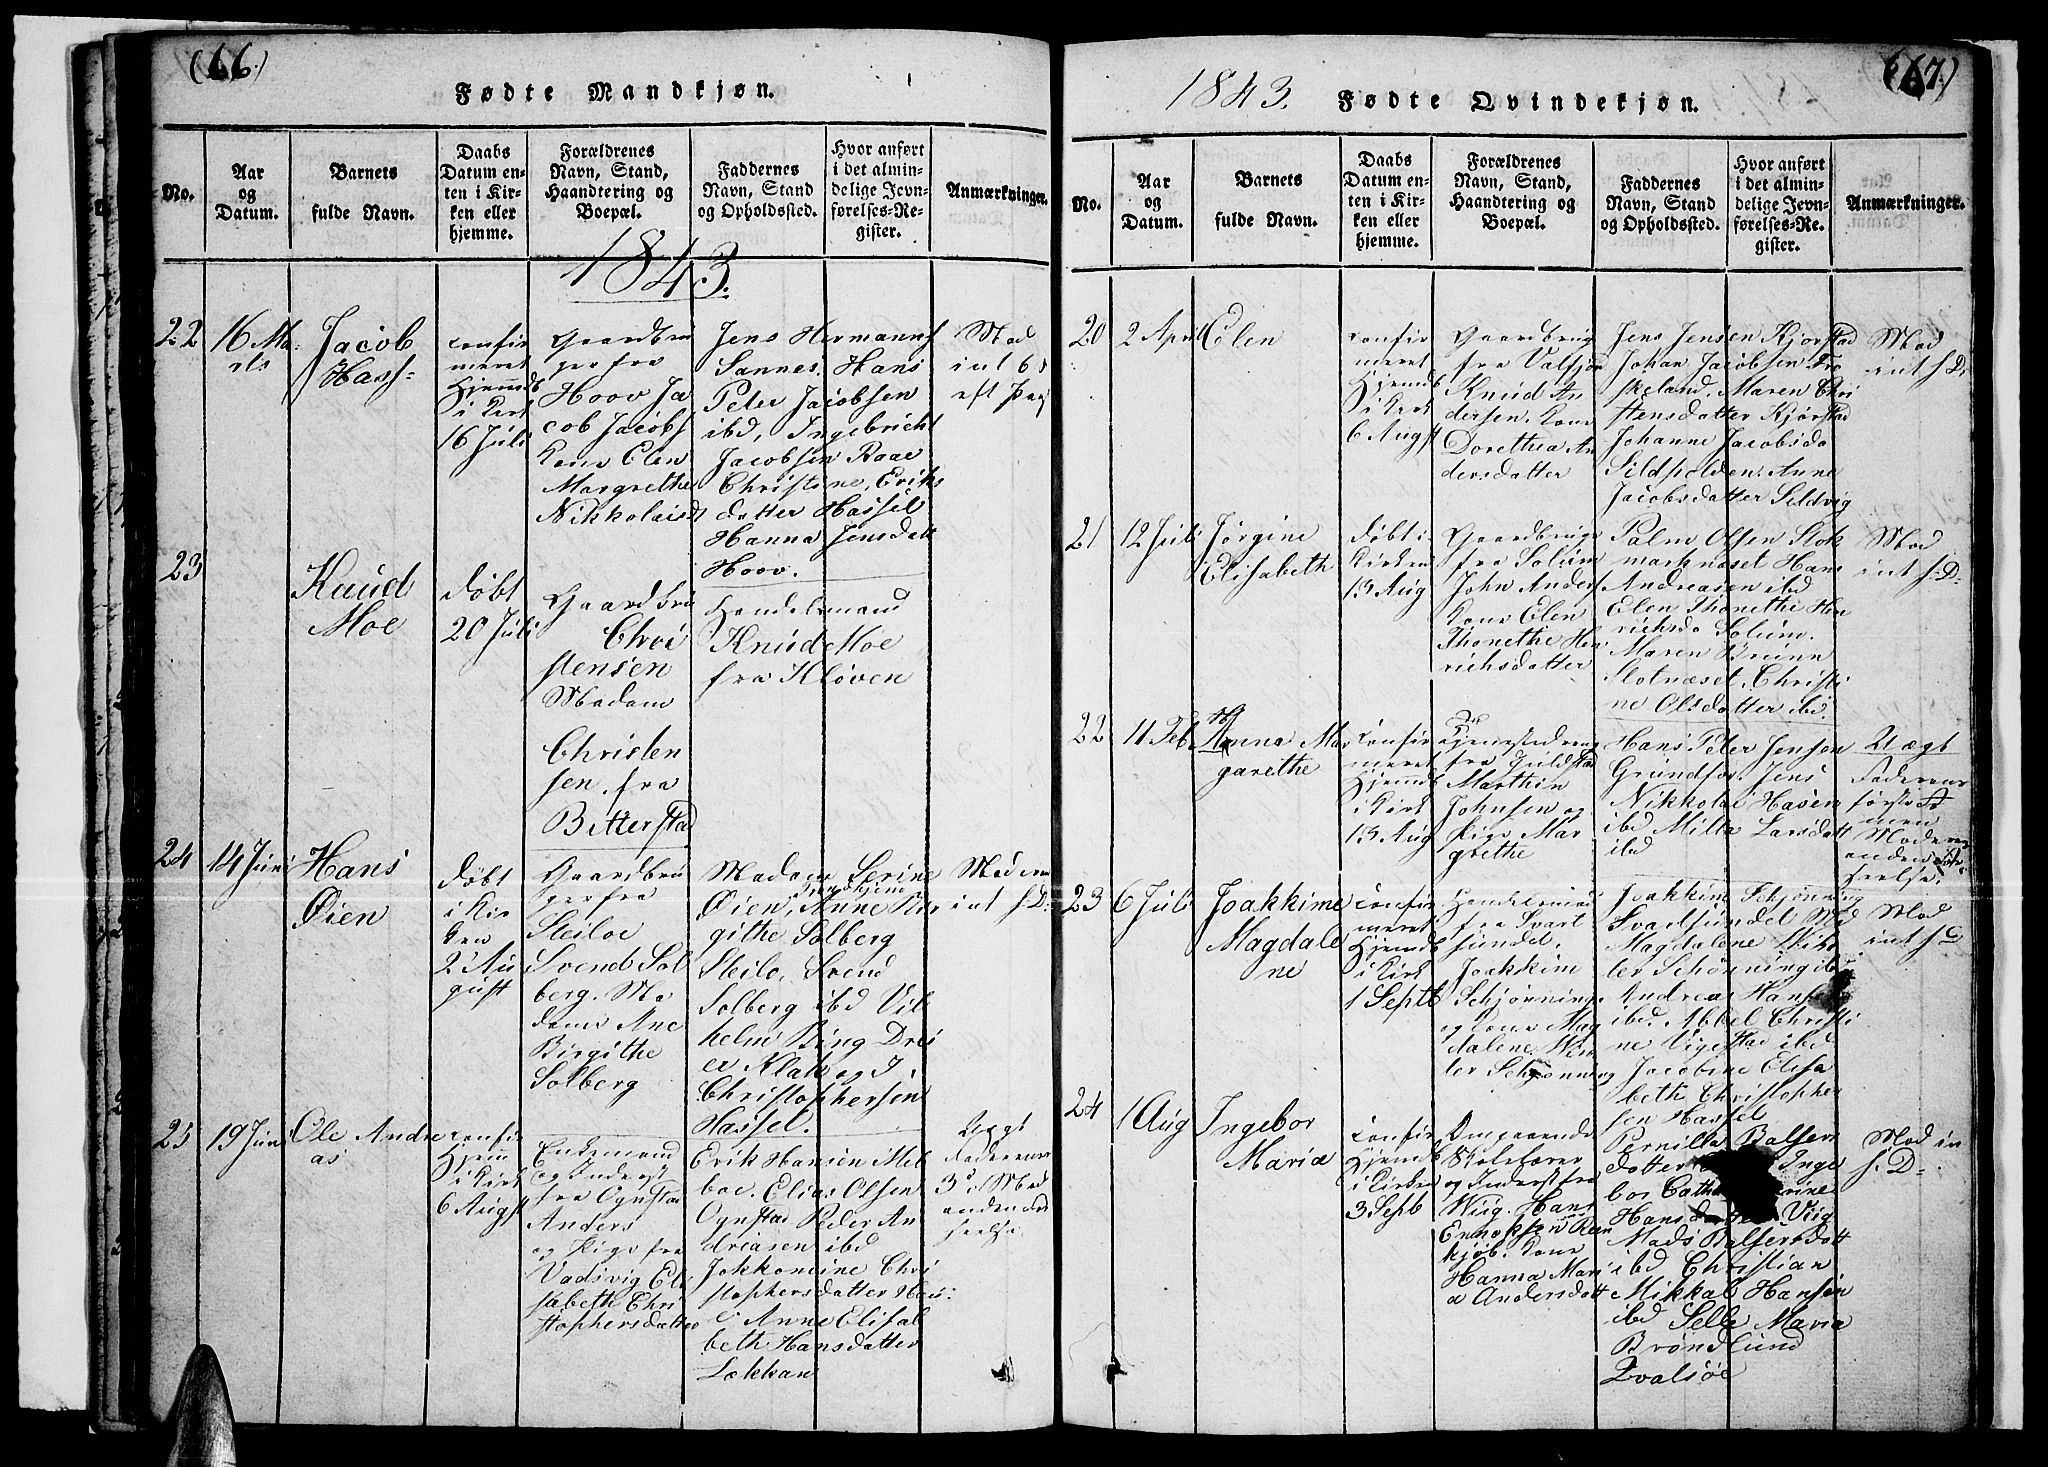 (66.)
Fødte Mandkjøn.
No.
Aar
og
Datum.
Barnets
fulde Navn.
Daabs
Datum en-
ten i Kir-
ken eller
hjemme.
Forældrenes
Navn, Stand,
Haandtering og
Boepæl.
Faddernes
Navn, Stand
og Opholdssted.
Hvor anført
i det almin-
delige Jevn-
førelses-Re-
gister.
Anmærkninger.
1843.
22
16 Ma
rts
Jacob
Hass-
confir
meret
Hjemdb
i Kirk
16 Juli
Gaardbru
ger fra
Hoov Ja
cob Jacobs
Kone Elen
Margrethe
Nikkolaisd
Jens Hermanns
Sannes, Hans
Peter Jacobsen
ibd, Ingebricht
Jacobsen Raae
Christine, Eriks
datter Hassel
Hanna Jensdatt
Hoov.
Mod
int
23
Knud
Moe
døbt
20 Juli
Gaardbru
Chri
stensen
Madam
Christen
sen, fra
Bitterstad
Handelsmand
Knud Moe
fra Kløven
24
14 Juni
Hans
Øien
døbt
i Kir
ken
2 Au
gust
Gaardbru
ger fra
Steiloe
Svend Sol
berg. Ma
dame Ane
Birgithe
Solberg
Madam Serine
Øien, Trondhjem Anne Bir
githe Solberg
Steilo, Svend
Solberg ibd Vil
helm Bing Drei
er Klak og J
Christophersen
Hassel.
Moderen
int f. D.
25
19 Juni
Ole Andre
as
confir
Hjem
i Kirk
6 Augst
Enkemand
og Inderst
fra Ognstad
Anders
og Pige fra
Vadsvig Eli
sabeth Chri
stophersdatter
Erik Hansen Mel
boe. Elias Olsen
Ognstad Peder An
driasen ibd
Jokkomine Chri
stophersdatter
Anne Elisa
beth Hansdatter
Løkkan
Uægt
Faderens
3die Mod
anden
(67.)
1843. Fødte Qvindekjøn.
No.
Aar
og
Datum.
Barnets
fulde Navn.
Daabs
Datum en-
ten i Kir-
ken eller
hjemme.
Forældrenes
Navn, Stand,
Haandtering og
Boepæl.
Faddernes
Navn, Stand
og Opholdssted.
Hvor anført
i det almin-
delige Jevn-
førelses-Re-
gister.
Anmærkninger.
20
2 April
Elen
confir
meret
Hjemdb
i Kirk
6 Augst
Gaardbrug
fra Valfjor
Knud An
dersen, Kone
Dorethea An
dersdatter
Jens Jensen Kjørstad
Johan Jacobsen Fre
skeland, Maren Chri
stensdatter Kjørstad
Johanne Jacobsda
Sildpolden. Anne
Jacobsdatter Seldvig
Mod
int f. D.
21
12 Juli
Jørgine
Elisabeth
døbt i
Kirken
13 Aug
Gaardbruger
fra Solum
John Anders
Kone Elen
Thonethe Hen
richsdatter
Palm Olsen Stok
marknæset Hans
Andreasen ibd
Elen Thonethe Hen
richsda Solum.
Maren Bruun
Slotnæset, Christi
ne Olsdatter ibd.
Mod
int f. D.
22
11 Feb
Anna Mar
garethe
confir
meret
Hjemdb
i Kirk
13 Aug
Tjenestedreng
fra Guldstad
Marthin
Johnsen og
Pige Mar
grethe
Hans Peter Jensen
Grundfor, Jens
Nikkolai Hasen
ibd Milta Larsdatt
ibd
Uægt
Faderens
første
men
Moderens
anden
23
6 Juli
Joakkime
Magdale
ne
confir
meret
Hjemdb
i Kirk
1 Septb
Handelsmand
fra Svart
sundet.
Joakkim
Schjønning
og Kone Mag
dalene Win
ter Schjønning
Joakkim Schjønning
Svartsundet Mad
Magdalene Win
ter Schønning ibd
Andreas Hansen
ibd. Abbel Christi
ne Vigestad ibd
Jacobine Elisa
beth Christopher
sen Hassel
Mod
int
24
1 Aug
Ingebor
Maria
confir
Hjemdb
i Kirken
3 Septb
Omgaaende
Skolelærer
og Inderst fra
Wiig. Hans
Kone
Hanna Mari
a Andersdatt
Pernilla Balsers
datter Inge
bor Cath
Hansda Viig
Mads Balsersdatt
ibd Christian
Mikkal Hansen
ibd Selle Maria
Brøndlund
Qvalsøe
Mod in
f. D.